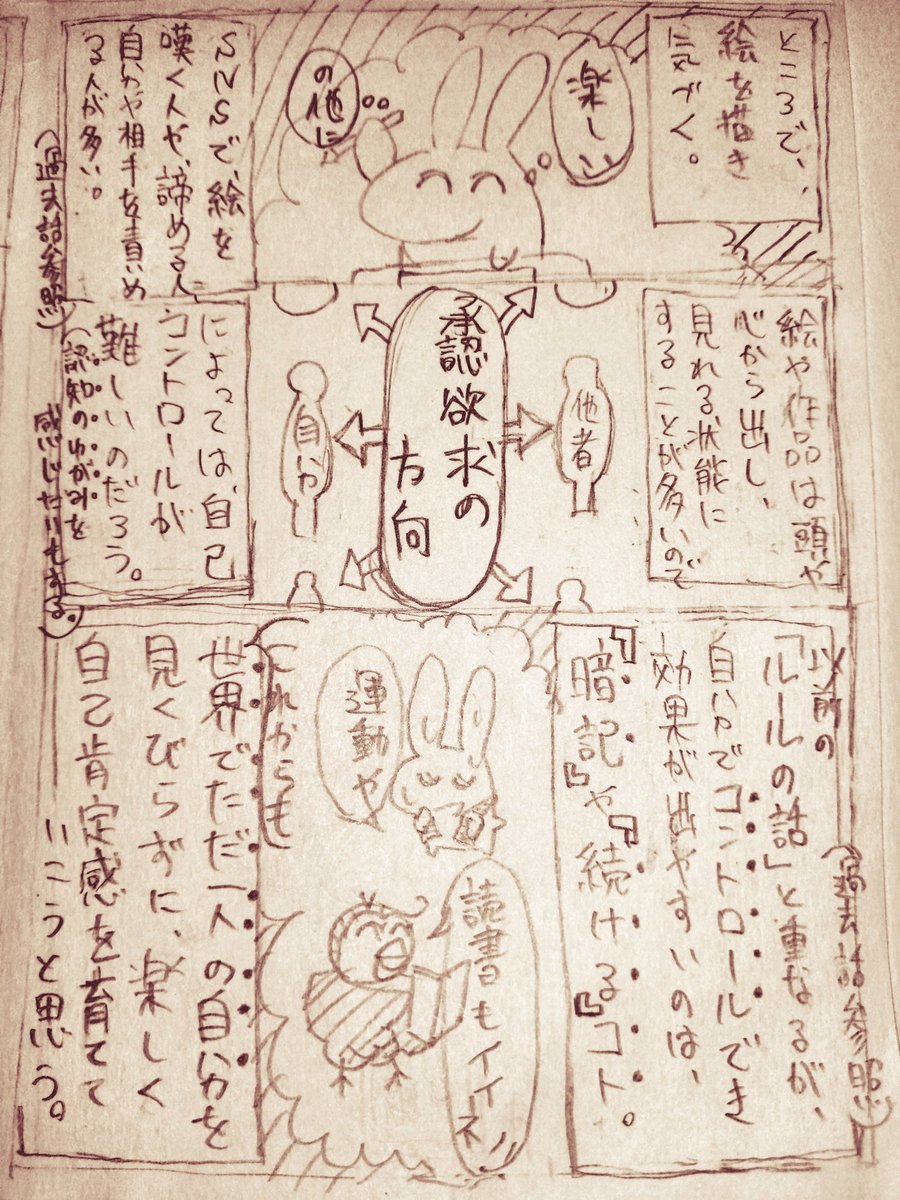 ところで、
絵を描き
気づく。
楽しい
の他に
SNSで、絵を
嘆く人や、諦める人
自分や相手を責め
る人が多い。
(過去話参照)
絵や作品は頭や
心から出し、
見れる状態に
することが多いので
他者
承認欲求の
方向
自分
によっては、自己
コントロールが
難しいのだろう。
(認知のゆがみを
感じたりもする。)
以前の
「ルールの話」と重なるが、
(過去話参照)
自分でコントロールでき
効果が出やすいのは、
『暗記』や『続ける』コト。
運動や
読書もイイネ
これからも
世界でただ一人の自分を
見くびらずに、楽しく
自己肯定感を育てて
いこうと思う。